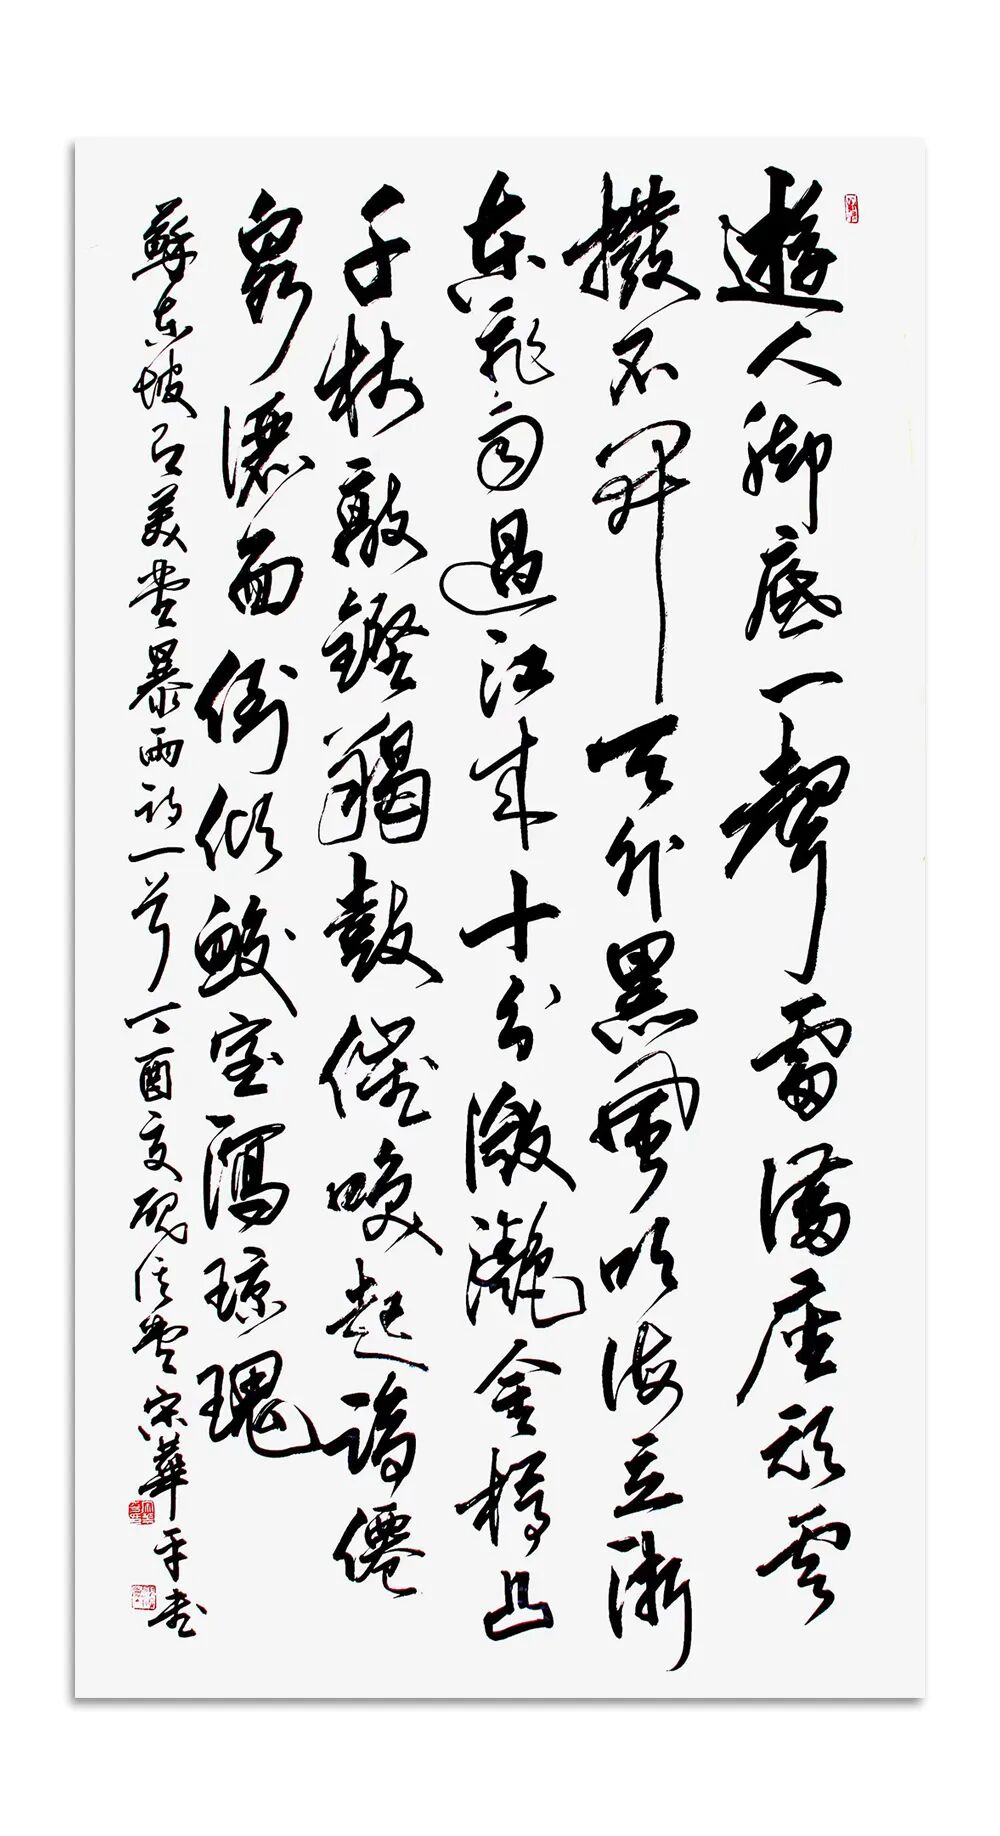 遊人脚底一聲雷滿座頑雲
撥不開天外黑風吹海立浙
東飛雨過江來十分瀲灩金樽凸
千杖敲鏗羯鼓催喚起謫僊
泉灑面倒傾鮫室瀉琼瑰
蘇東坡有美堂暴雨詩一首丁酉夏堂宋華平書